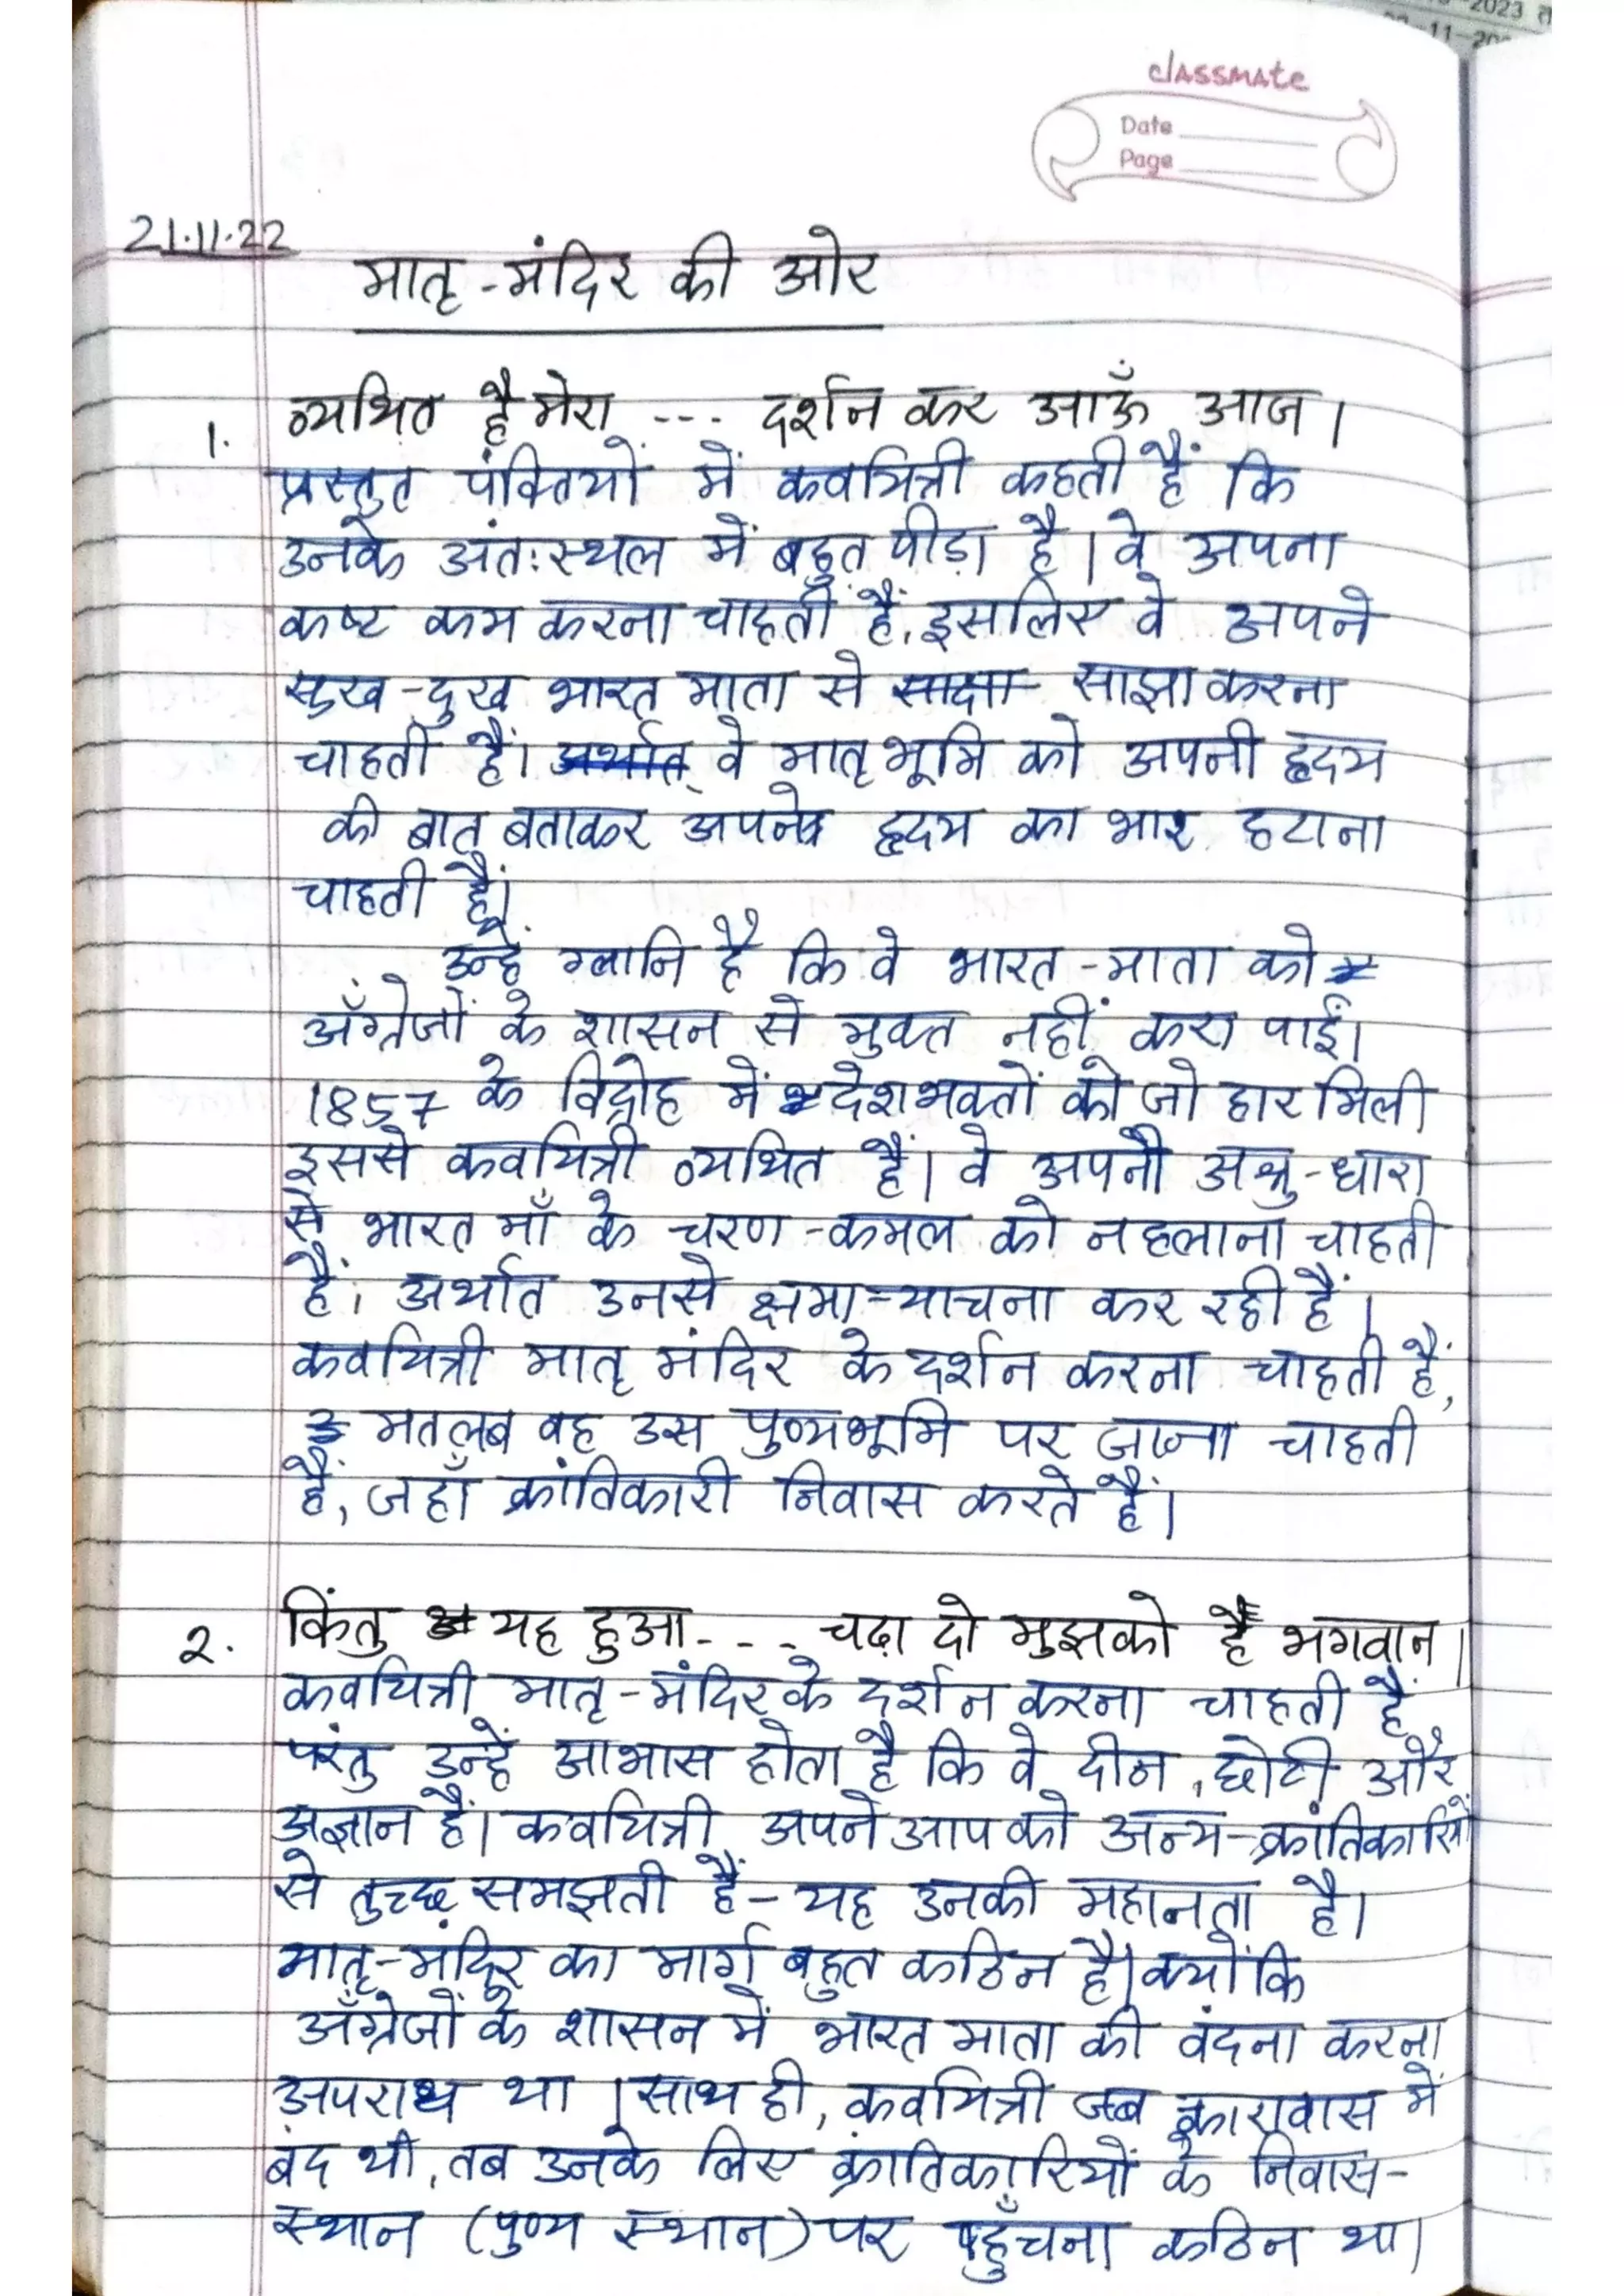 -2023 त
-11-20
classmate
Date
Page
21.11.22
मातृ-मंदिर की ओर
1. व्यथित है मेरा --- दर्शन कर आऊँ आज।
प्रस्तुत पंक्तियों में कवयित्री कहती हैं कि
उनके अंतःस्थल में बहुत पीड़ा है। वे अपना
कष्ट कम करना चाहती हैं, इसलिए वे अपने
सुख-दुख भारत माता से साझा करना
चाहती हैं। अर्थात् वे मातृभूमि को अपनी हृदय
की बात बताकर अपने हृदय का भार हटाना
चाहती हैं।
उन्हें ग्लानि है कि वे भारत-माता को
अँग्रेजों के शासन से मुक्त नहीं करा पाईं।
1857 के विद्रोह में देशभक्तों को जो हार मिली
इससे कवयित्री व्यथित हैं। वे अपनी अश्रु-धारा
से भारत माँ के चरण-कमल को नहलाना चाहती
हैं। अर्थात उनसे क्षमा-याचना कर रही हैं।
कवयित्री मातृ मंदिर के दर्शन करना चाहती हैं,
मतलब वह उस पुण्यभूमि पर जाना चाहती
हैं, जहाँ क्रांतिकारी निवास करते हैं।
2. किंतु यह हुआ--- चढ़ा दो मुझको हे भगवान।
कवयित्री मातृ-मंदिर के दर्शन करना चाहती हैं
परंतु उन्हें आभास होता है कि वे दीन, छोटी और
अज्ञान हैं। कवयित्री अपने आप को अन्य-क्रांतिकारियों
से तुच्छ समझती हैं - यह उनकी महानता है।
मातृ-मंदिर का मार्ग बहुत कठिन है। क्योंकि
अँग्रेजों के शासन में भारत माता की वंदना करना
अपराध था। साथ ही, कवयित्री जब कारावास में
बंद थी, तब उनके लिए क्रांतिकारियों के निवास-
स्थान (पुण्य स्थान) पर पहुँचना कठिन था।